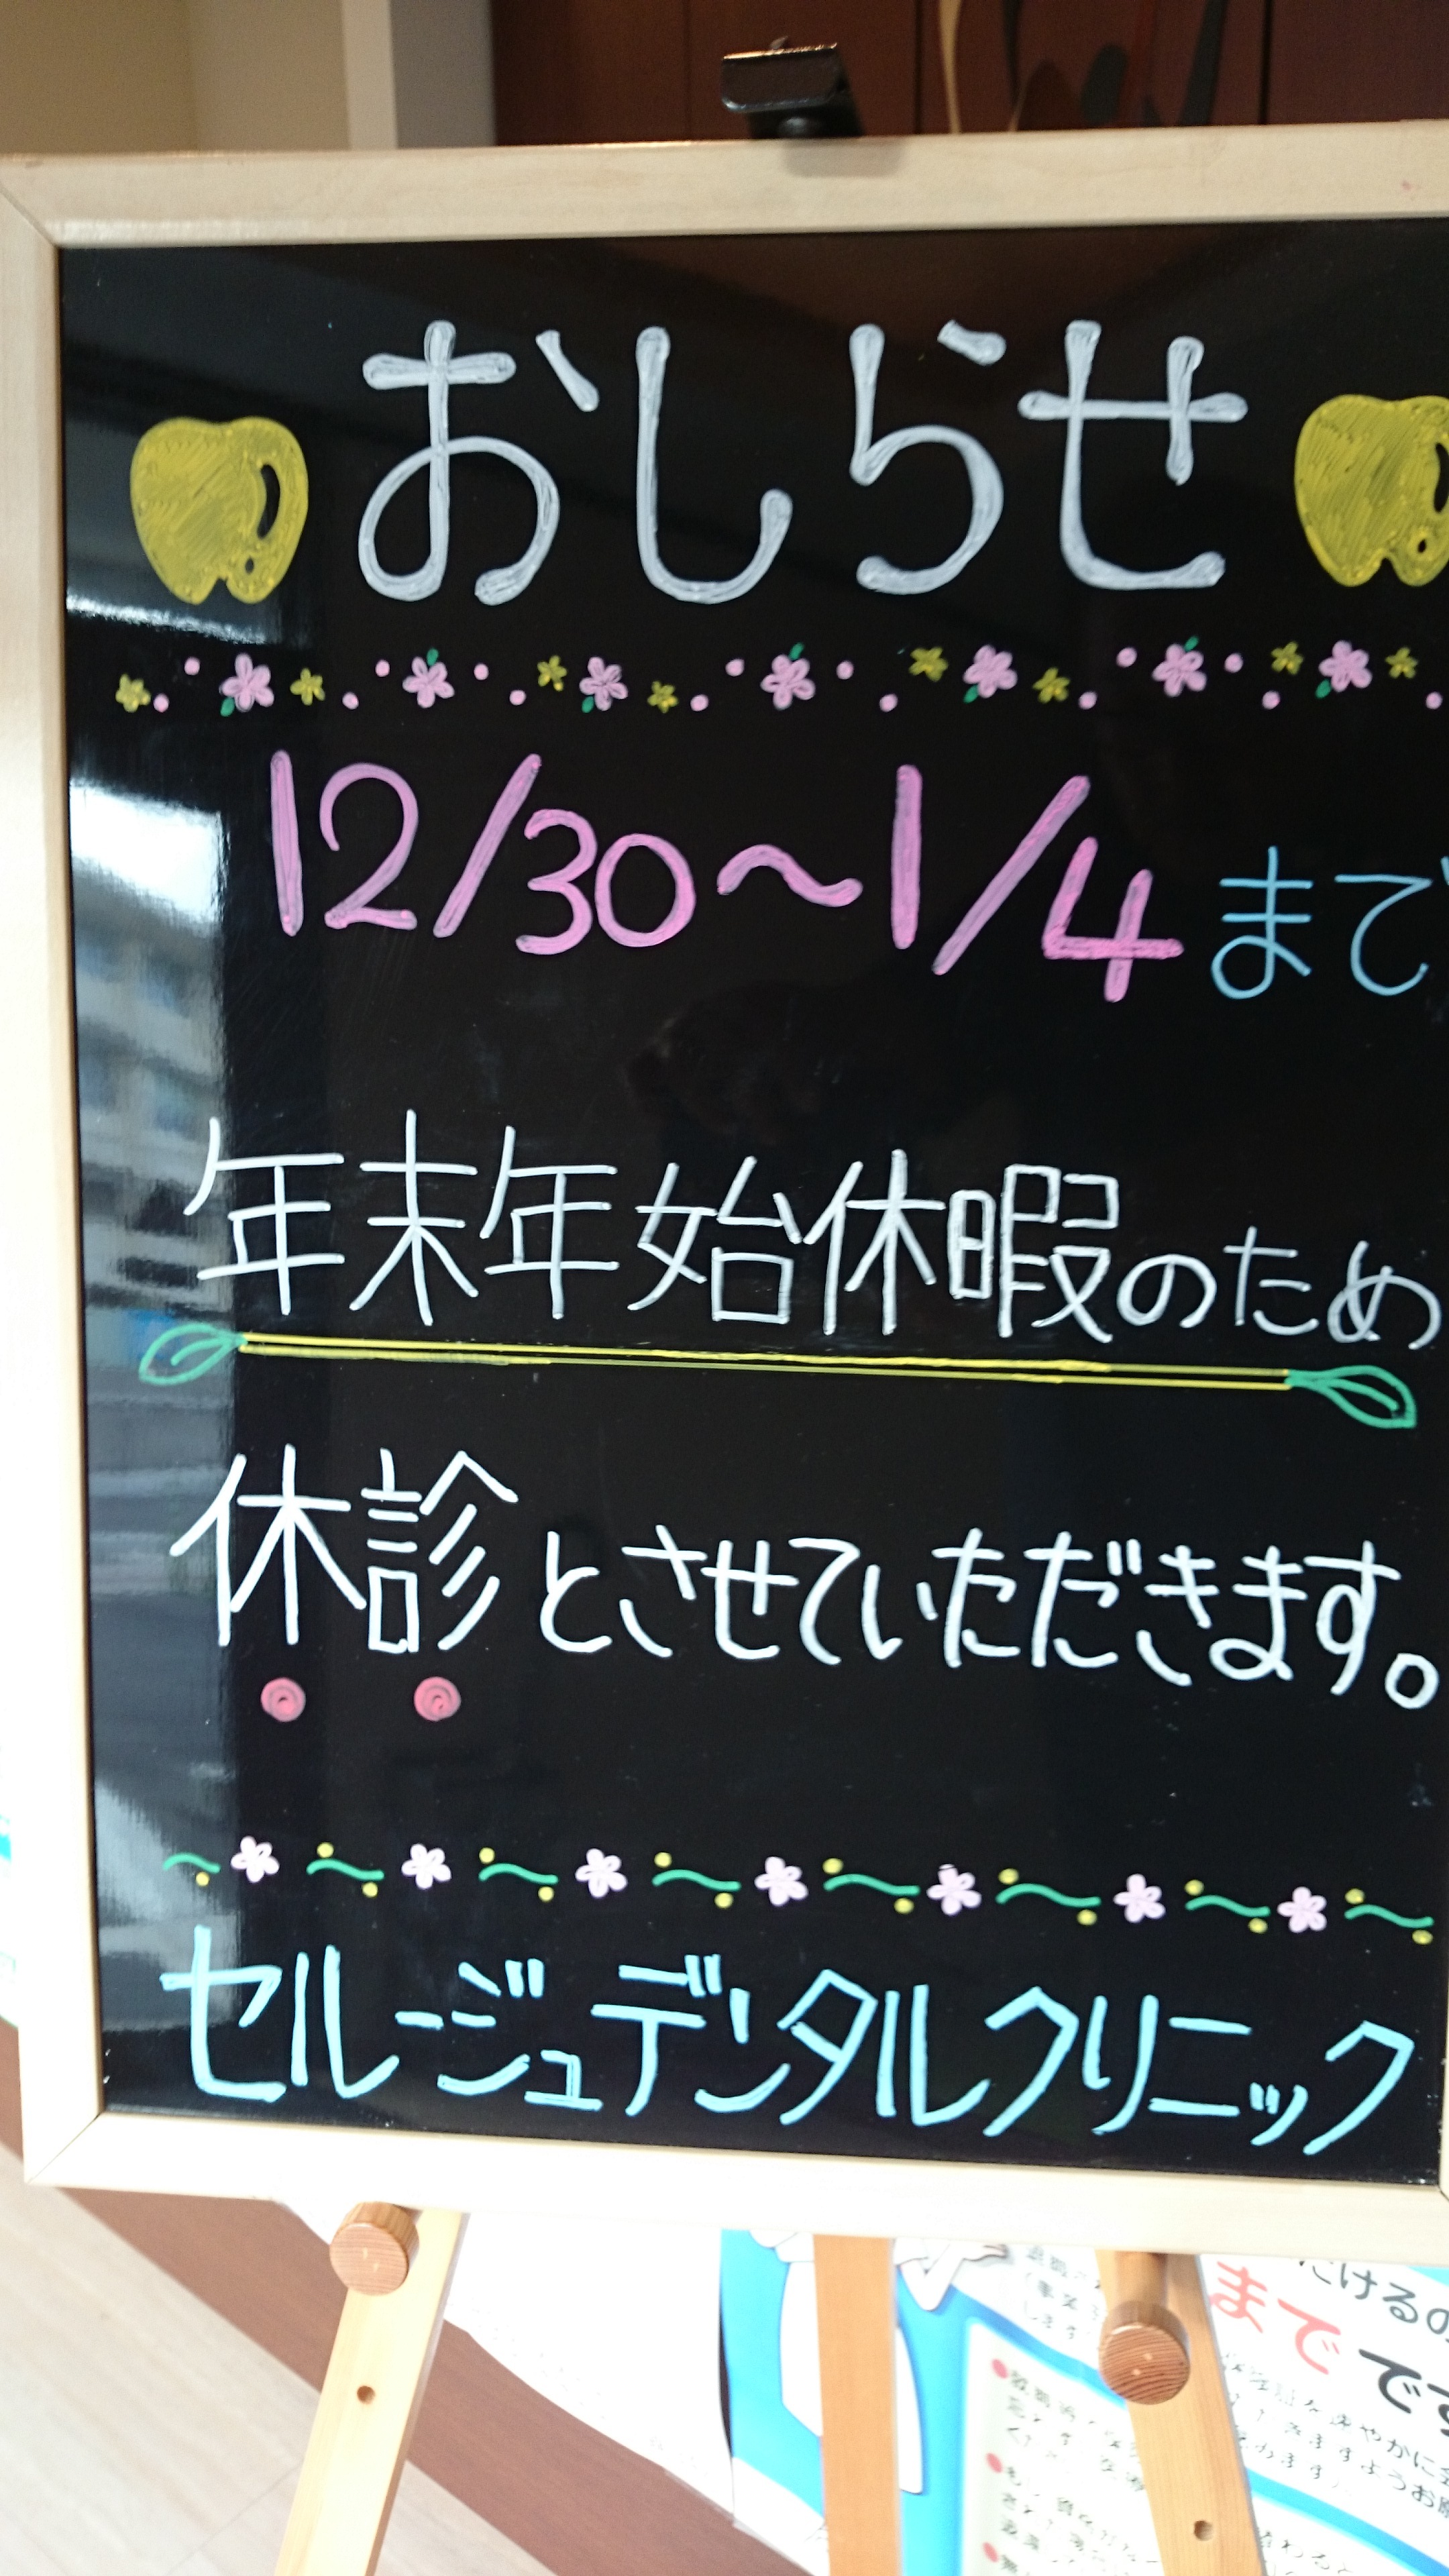 おしらせ
12/30～1/4まで
年末年始休暇のため
休診とさせていただきます。
セルージュデンタルクリニック
だけるの
までです